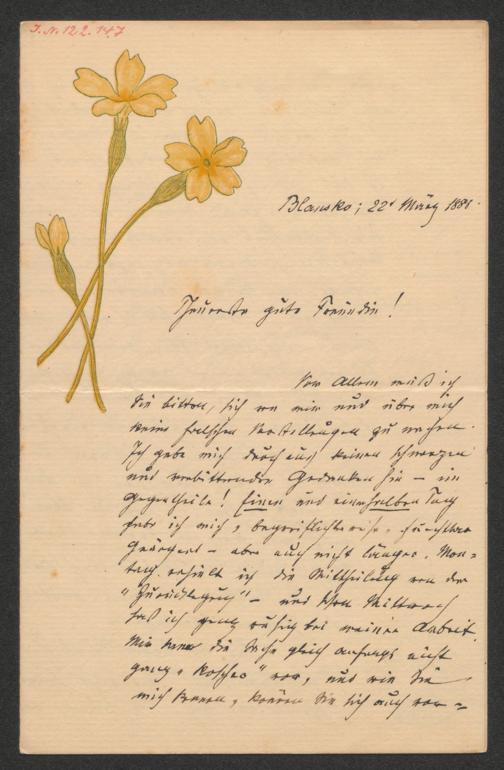 I.N. 122.147
Blansko; 22t März 1881.
Theuerste gute Freundin!
Vor Allem muß ich
Sie bitten, sich von mir und über mich
keine falschen Vorstellungen zu machen.
Ich gebe mich durchaus keinen schwarzen
und verbitternden Gedanken hin – im
Gegentheile! Einen und einenhalben Tag
habe ich mich, begreiflicherweise, furchtbar
geärgert – aber auch nicht länger. Mon-
tag erhielt ich die Mittheilung von der
"Zurücklegung" – und schon Mittwoch
saß ich ganz ruhig bei meiner Arbeit.
Mir kam die Sache gleich anfangs nicht
ganz "koscher" vor, und wie Sie
mich kennen, können Sie sich auch vor-